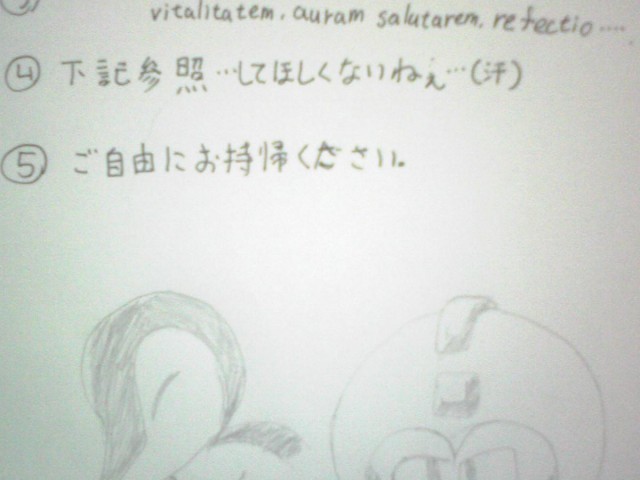 ③ vitalitatem, auram salutarem, refectio……
④ 下記参照…してほしくないねぇ…(汗)
⑤ ご自由にお持帰ください.